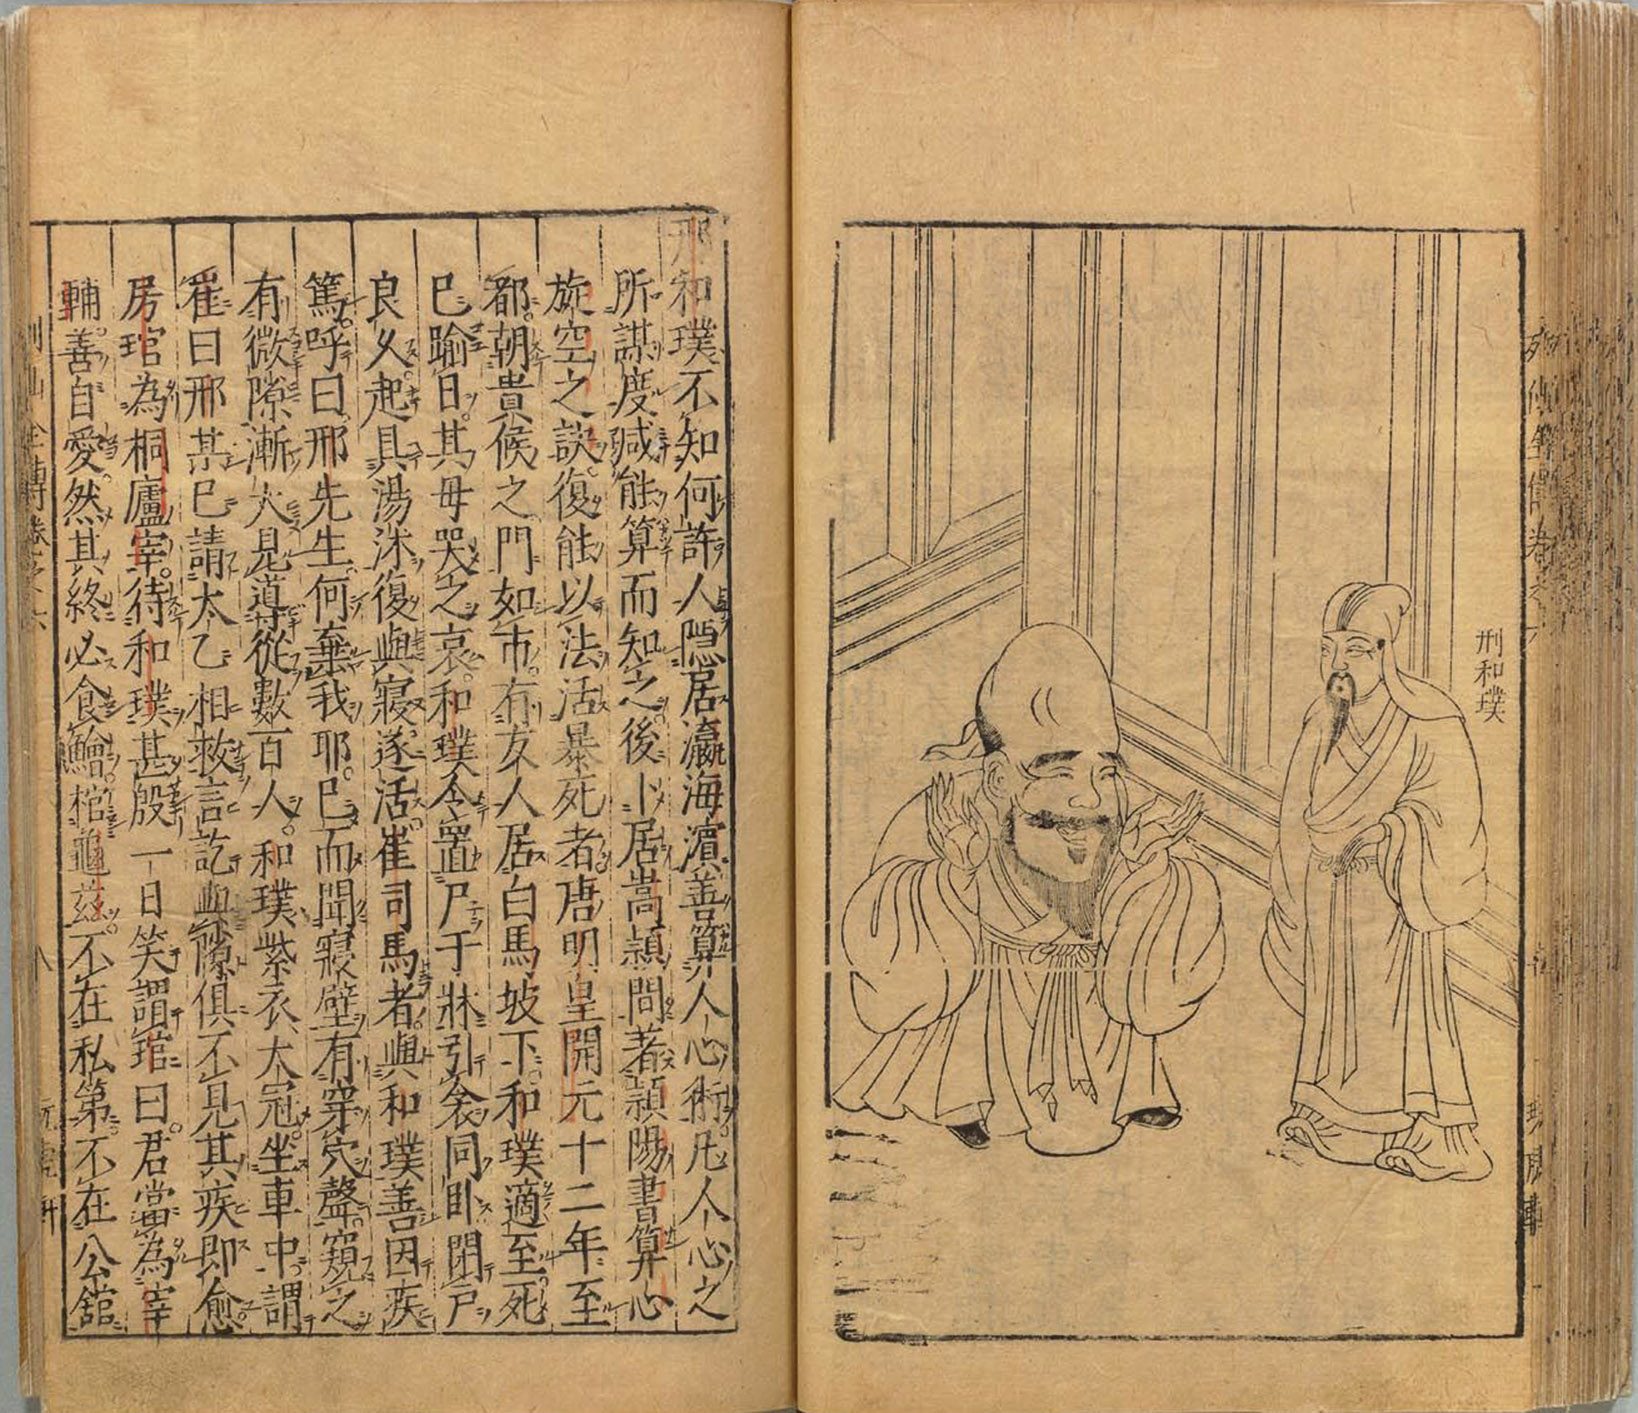 刑和璞
邢和璞不知何許人隠居瀛海濵善算人心術凡人心之
所謀度咸能算而知之後卜居嵩潁間著潁陽書算心
旋空之訣復能以法活暴死者唐明皇開元十二年至
都朝貴候之門如市有友人居白馬坡下和璞適至死
巳踰日其母哭之哀和璞令置尸于牀引衾同卧閉戸
良乆起具湯沐復與寢遂活崔司馬者與和璞善因疾
篤呼曰邢先生何棄我耶巳而聞寢壁有穿穴聲窺之
有微隙漸大見導從數百人和璞紫衣大冠坐車中謂
崔曰邢某巳請太乙相救言訖與隙俱不見其疾即愈
房琯為桐廬宰待和璞甚殷一日笑謂琯曰君當為宰
輔善自愛然其終必食鱠棺龜茲不在私第不在公舘